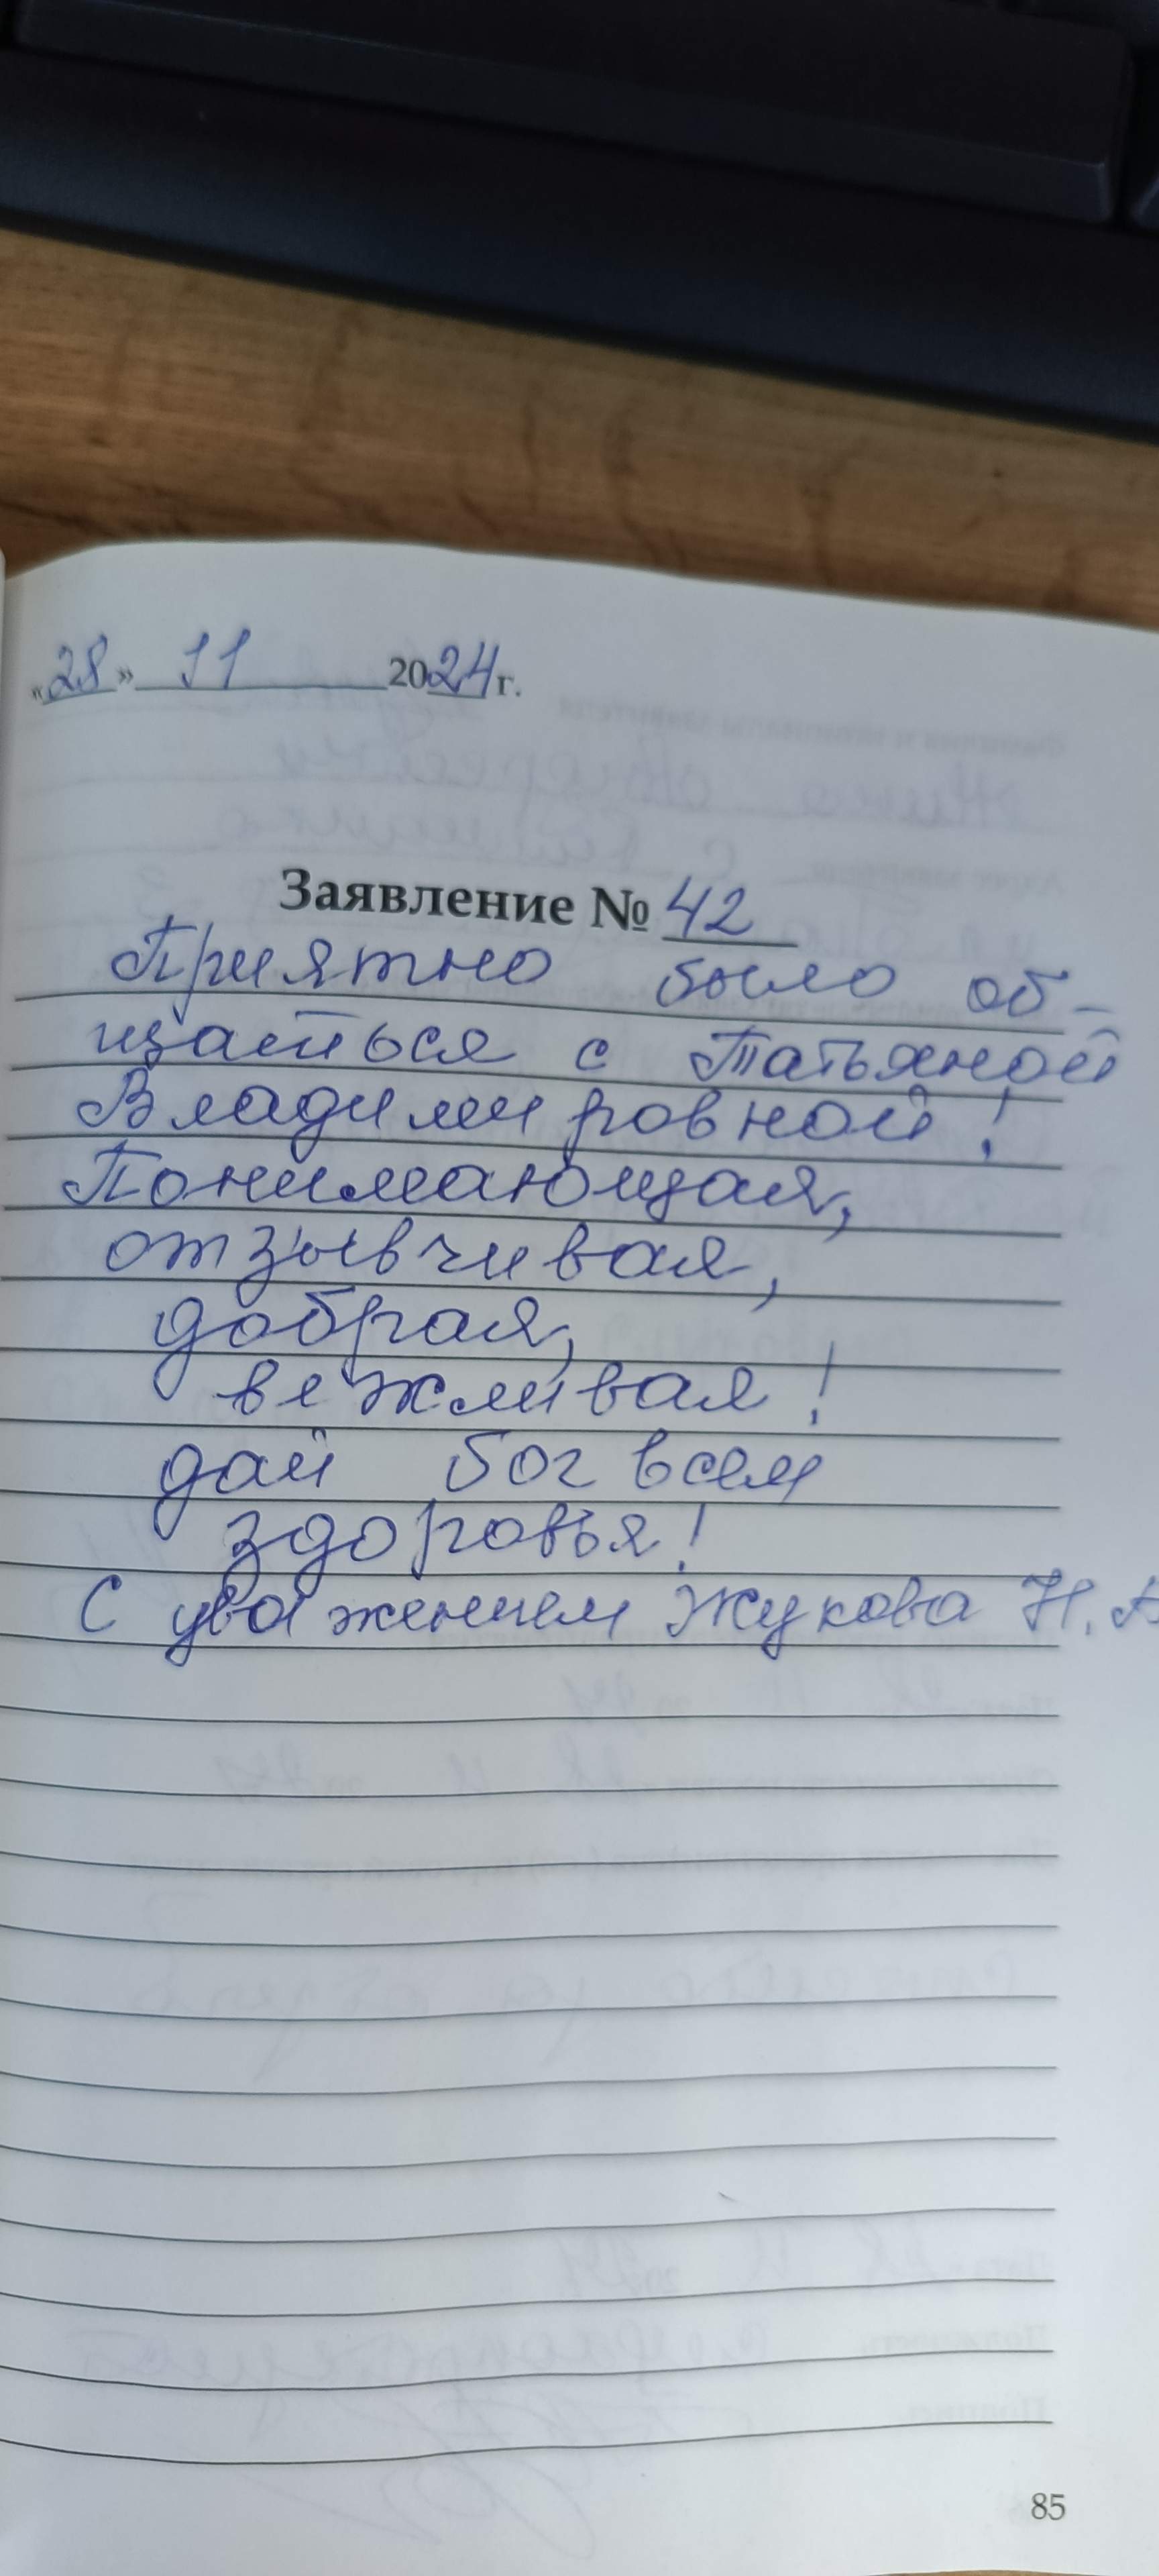 «28» 11 2024 г.
Заявление № 42
Приятно было об-
щаться с Татьяной
Владимировной!
Понимающая,
отзывчивая,
добрая,
вежливая!
дай бог всем
здоровья!
С уважением Жукова Н.А
85